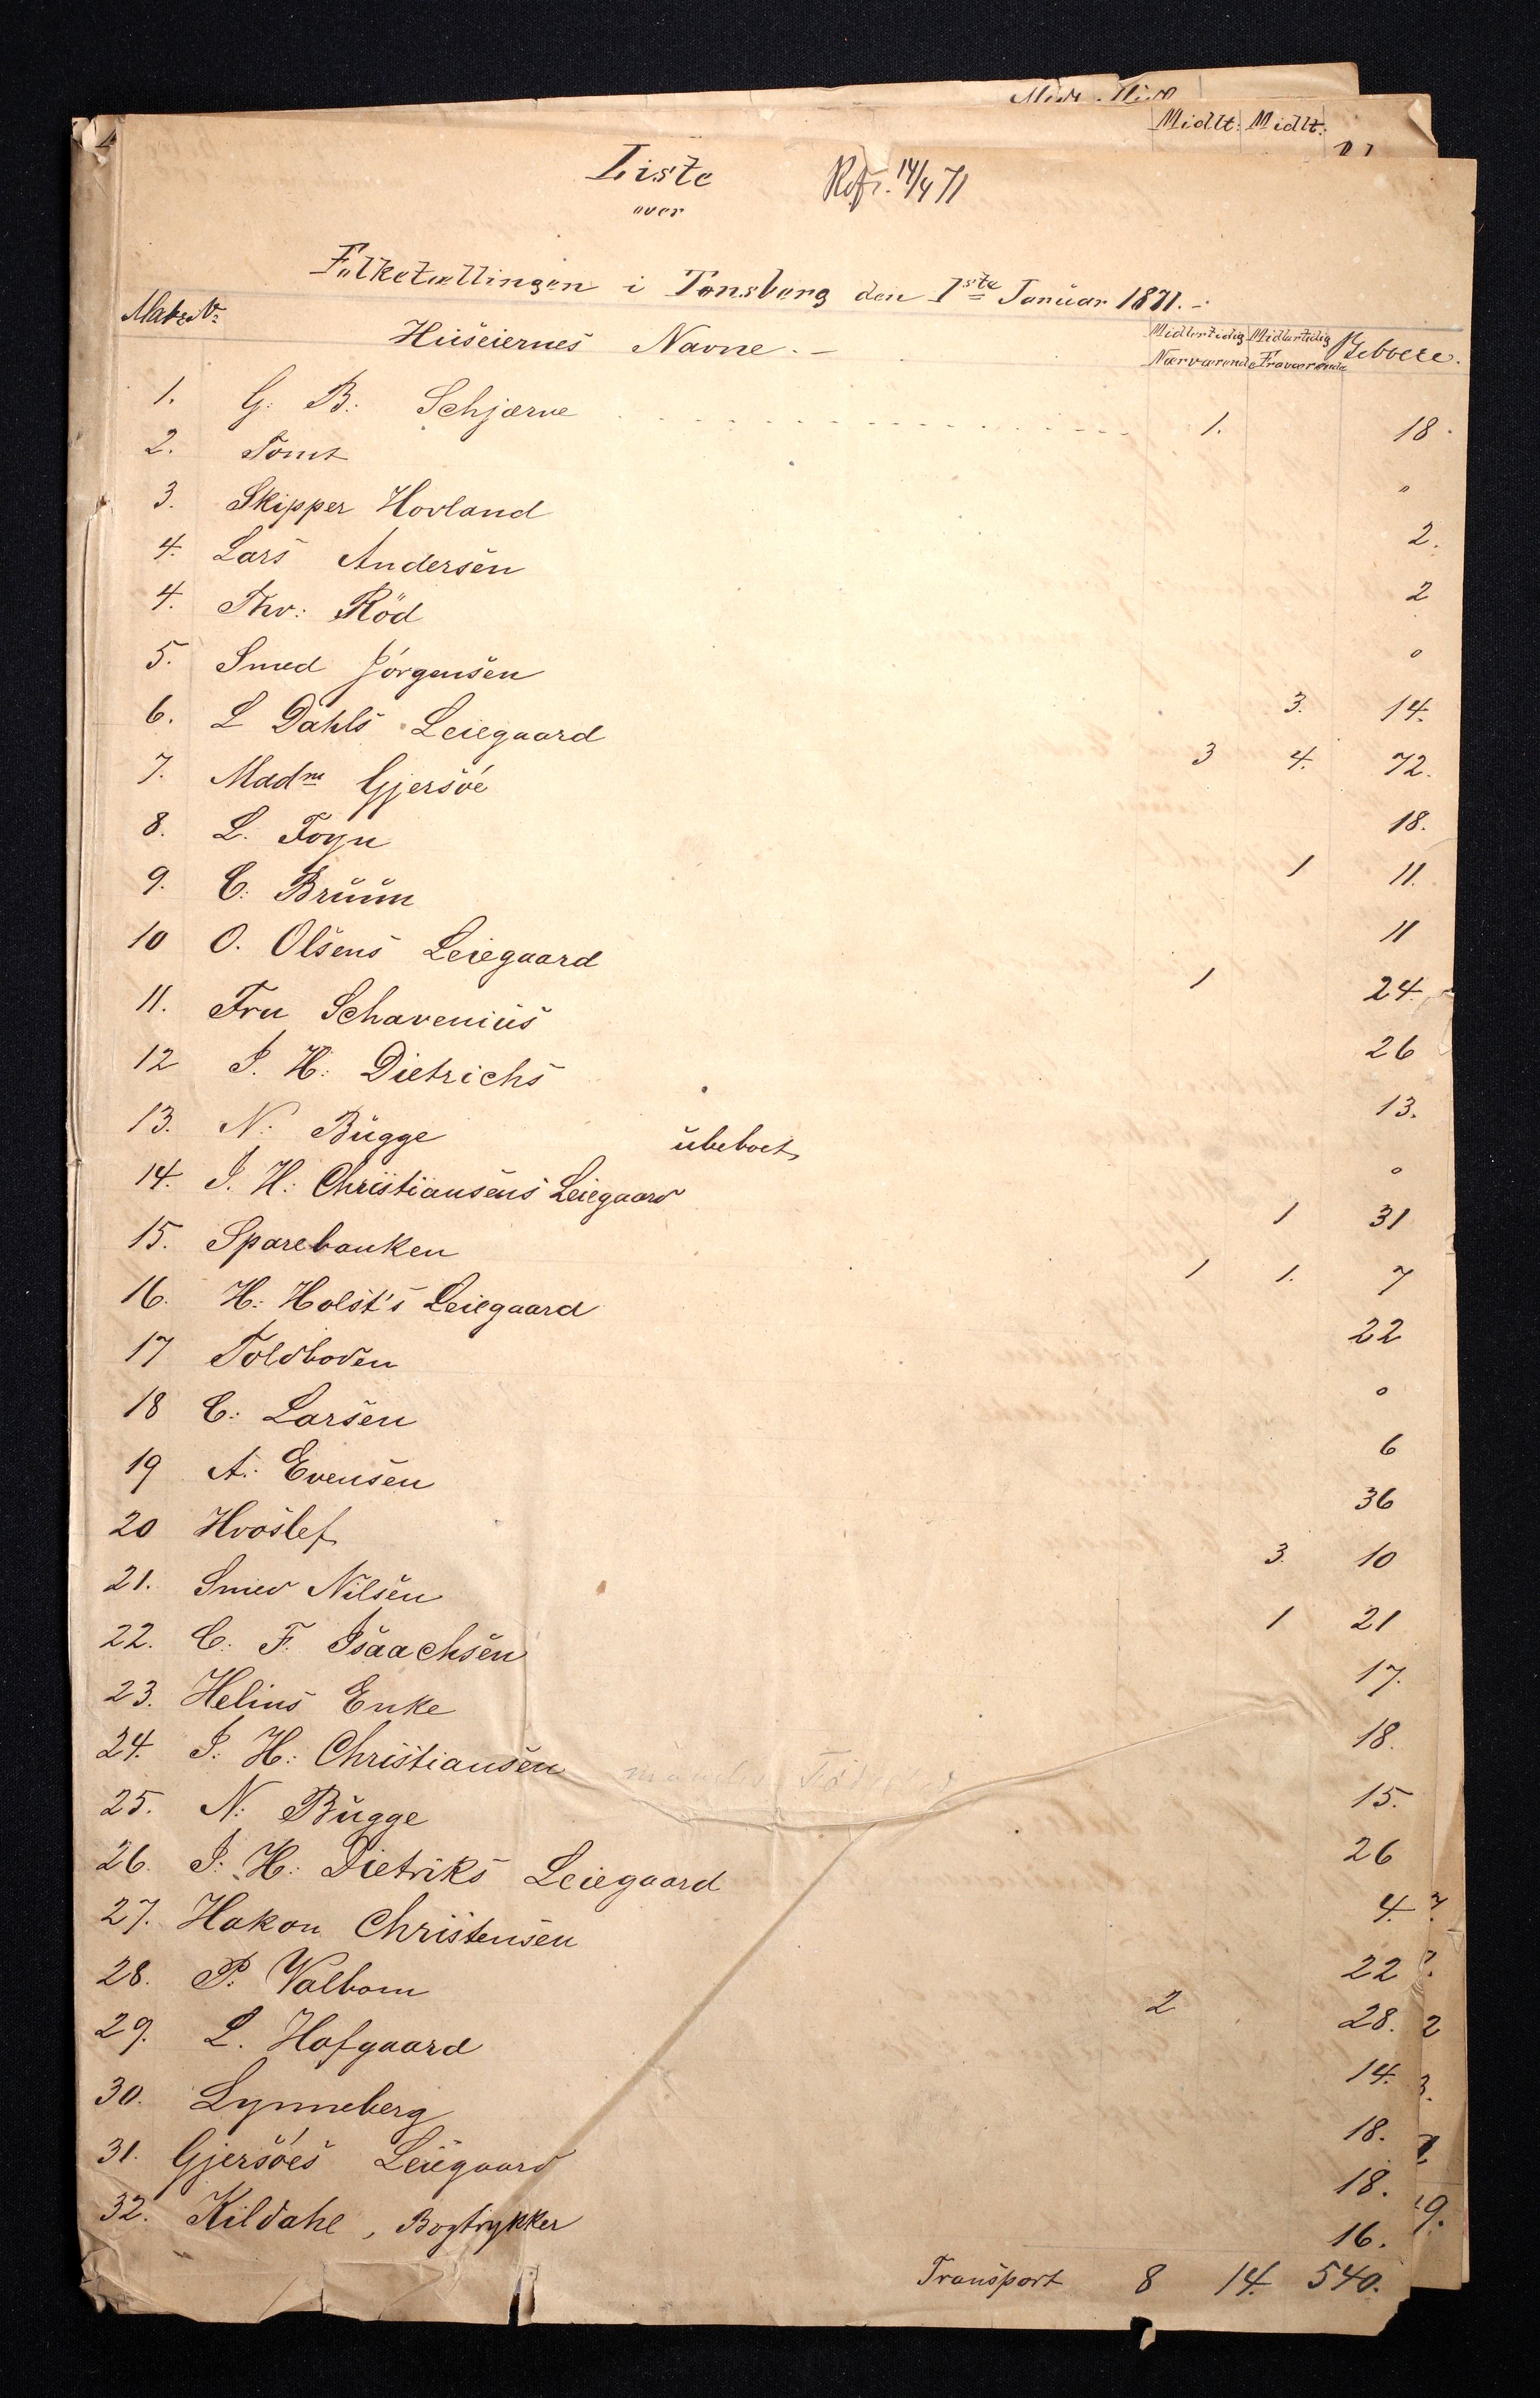 Midlt: Midlt:
Liste Refr. 14/4 71
over
Folketællingen i Tønsberg den 1ste Januar 1871. -
Matr: Nr Huseiernes Navne. - Midlertidig Nærværende Midlertidig Fraværende Beboere.
1. G: B: Schjærve 1. 18.
2. Tomt "
3. Skipper Hovland 2.
4. Lars Andersen 2
4. Thv: Röd o
5. Smed Jörgensen 3. 14.
6. L Dahls Leiegaard 3 4. 72.
7. Madm Gjersöe 18.
8. L. Foyn 1 11.
9. C: Bruun 11
10 O. Olsens Leiegaard 1 24.
11. Fru Schavenius 26
12 J. H: Dietrichs 13.
13. N: Bugge ubeboet o
14. J. H: Christiansens Leiegaard 1 31
15. Sparebanken 1 1. 7
16. H: Holst's Leiegaard 22
17 Toldboden o
18 C: Larsen 6
19 A: Evensen 36
20 Hvoslef 3. 10
21. Smed Nilsen 1 21
22. C: F. Isaachsen 17.
23. Helius Enke 18.
24. J: H: Christiansen 15.
25. N: Bugge 26
26. J: H: Dietriks Leiegaard 4.
27. Hakon Christensen 22
28. P: Valbom 2 28.
29. L. Hofgaard 14.
30. Lynneberg 18.
31. Gjersöes Leiegaard 18.
32. Kildahl, Bogtrykker 16.
Transport 8 14. 540.